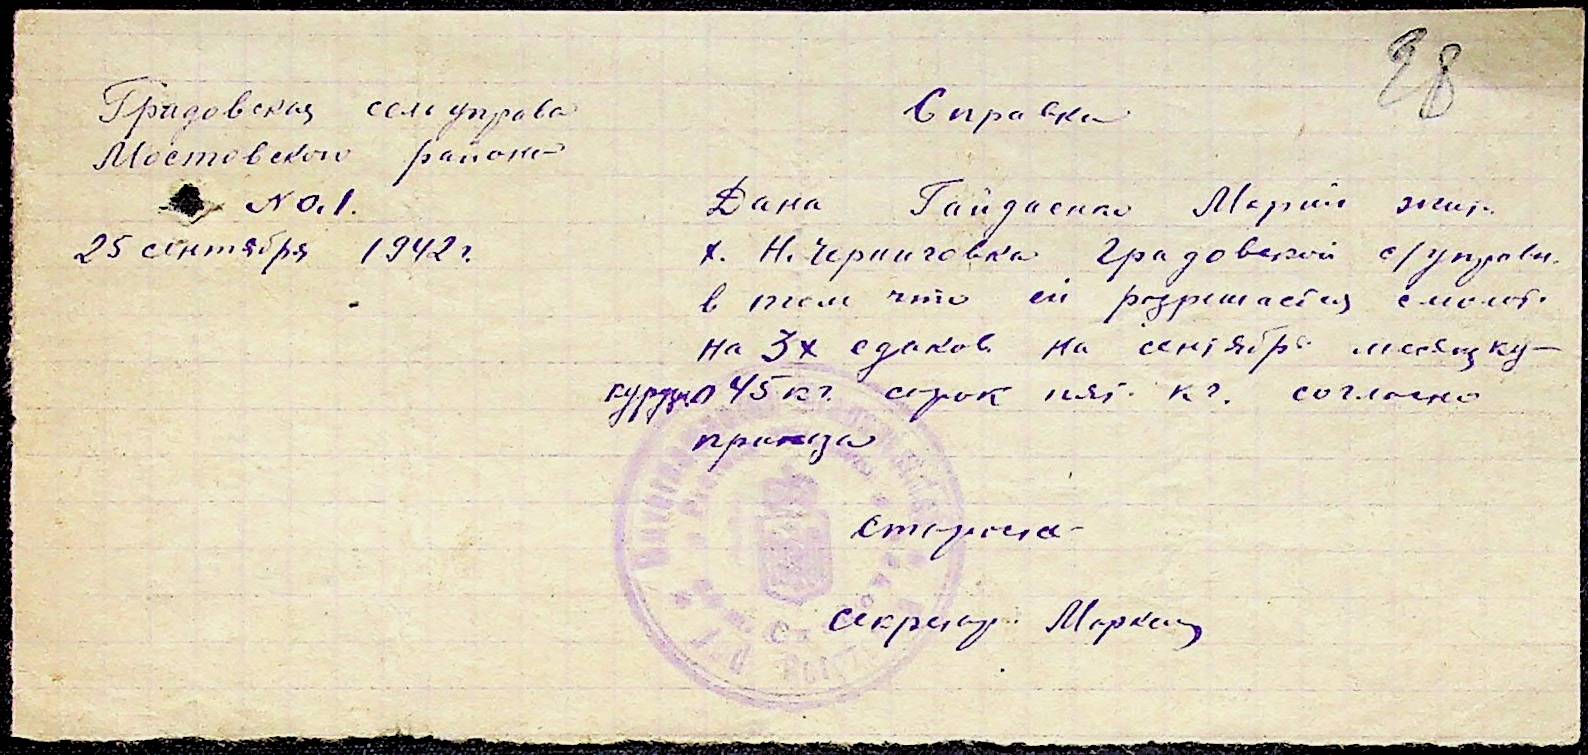 28
Градовская сельуправа
Мостовского района
No. 1.
25 сентября 1942 г.
Справка
Дана Гайдаенко Марии жит.
х. Н. Черниговка Градовской с/управы.
в том что ей розрешается смолот.
на 3х едаков на сентябрь месяц ку-
курузы 45 кг. сорок пят. кг. согласно
приказа
Староста
Секретар. Маркец